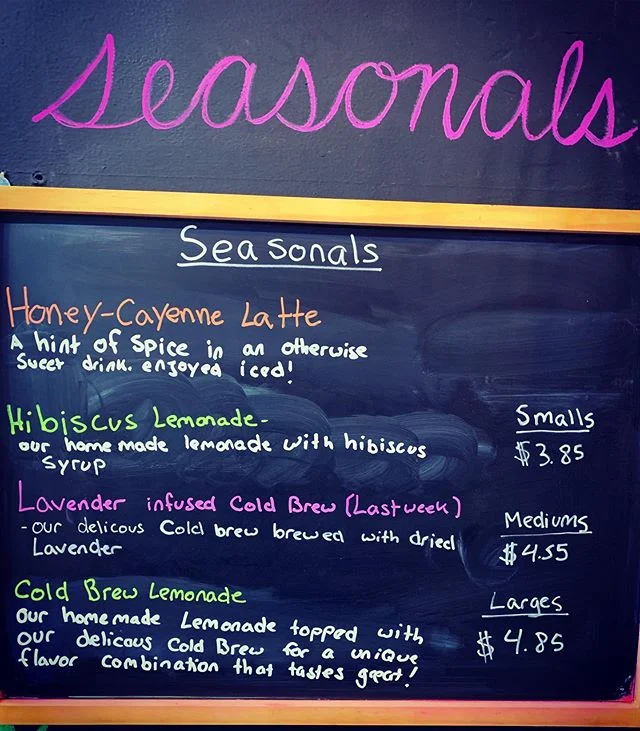 Seasonals
Seasonals
Honey-Cayenne Latte
A hint of spice in an otherwise
Sweet drink. enjoyed iced!
Hibiscus Lemonade-
our home made lemonade with hibiscus
syrup
Lavender infused Cold Brew (Last week)
- our delicous Cold brew brewed with dried
Lavender
Cold Brew Lemonade
our homemade Lemonade topped with
our delicous Cold Brew for a unique
flavor combination that tastes great!
Smalls
$3.85
Mediums
$4.55
Larges
$4.85